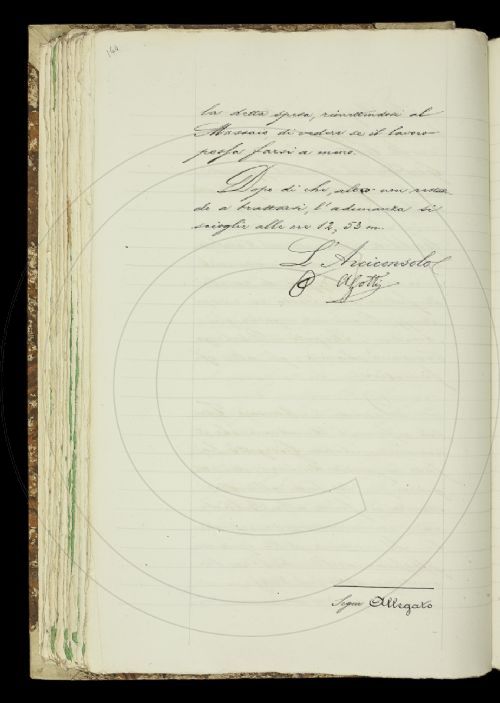 164
la detta spesa, rimettendosi al
Massaio di vedere se il lavoro
possa farsi a meno.
Dopo di che, altro non resta
de a trattarsi, l'adunanza si
scioglie alle ore 12, 53 m.
L'Arciconsolo
Segue Allegato